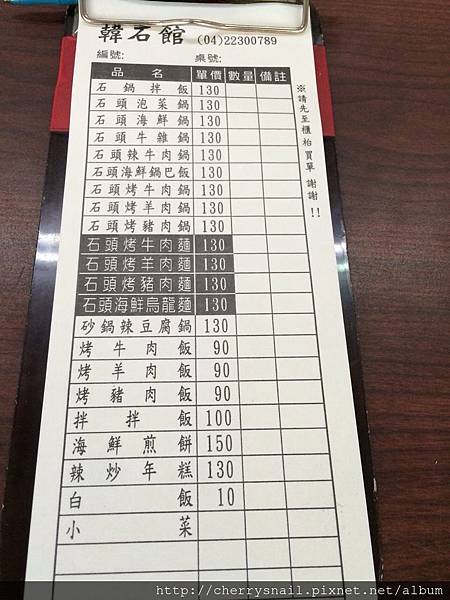 韓石館 (04)22300789
編號: 桌號:
品名 單價 數量 備註
石鍋拌飯 130
石頭泡菜鍋 130
石頭海鮮鍋 130
石頭牛雜鍋 130
石頭辣牛肉鍋 130
石頭海鮮鍋巴飯 130
石頭烤牛肉鍋 130
石頭烤羊肉鍋 130
石頭烤豬肉鍋 130
石頭烤牛肉麵 130
石頭烤羊肉麵 130
石頭烤豬肉麵 130
石頭海鮮烏龍麵 130
砂鍋辣豆腐鍋 130
烤牛肉飯 90
烤羊肉飯 90
烤豬肉飯 90
拌拌飯 100
海鮮煎餅 150
辣炒年糕 130
白飯 10
小菜
※請先至櫃枱買單 謝謝!!
http://cherrysnail.pixnet.net/album